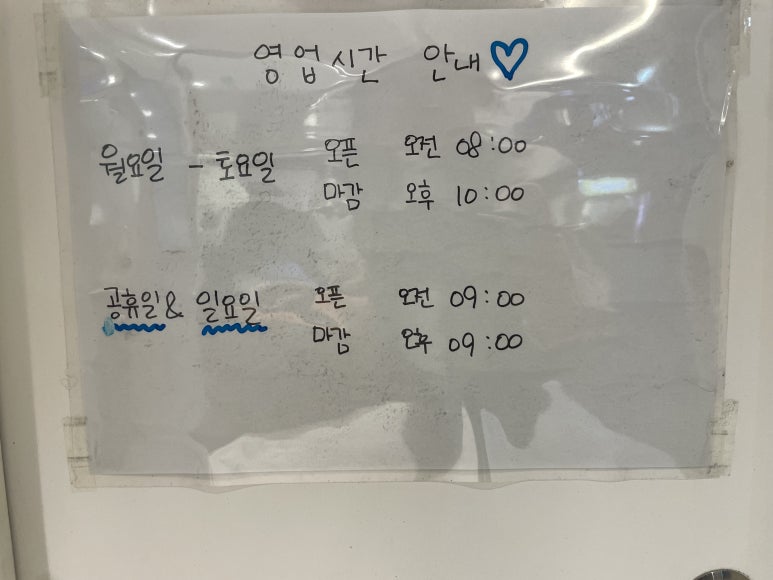 영업시간 안내♡
월요일 - 토요일 오픈 오전 08:00
마감 오후 10:00
공휴일 & 일요일 오픈 오전 09:00
마감 오후 09:00